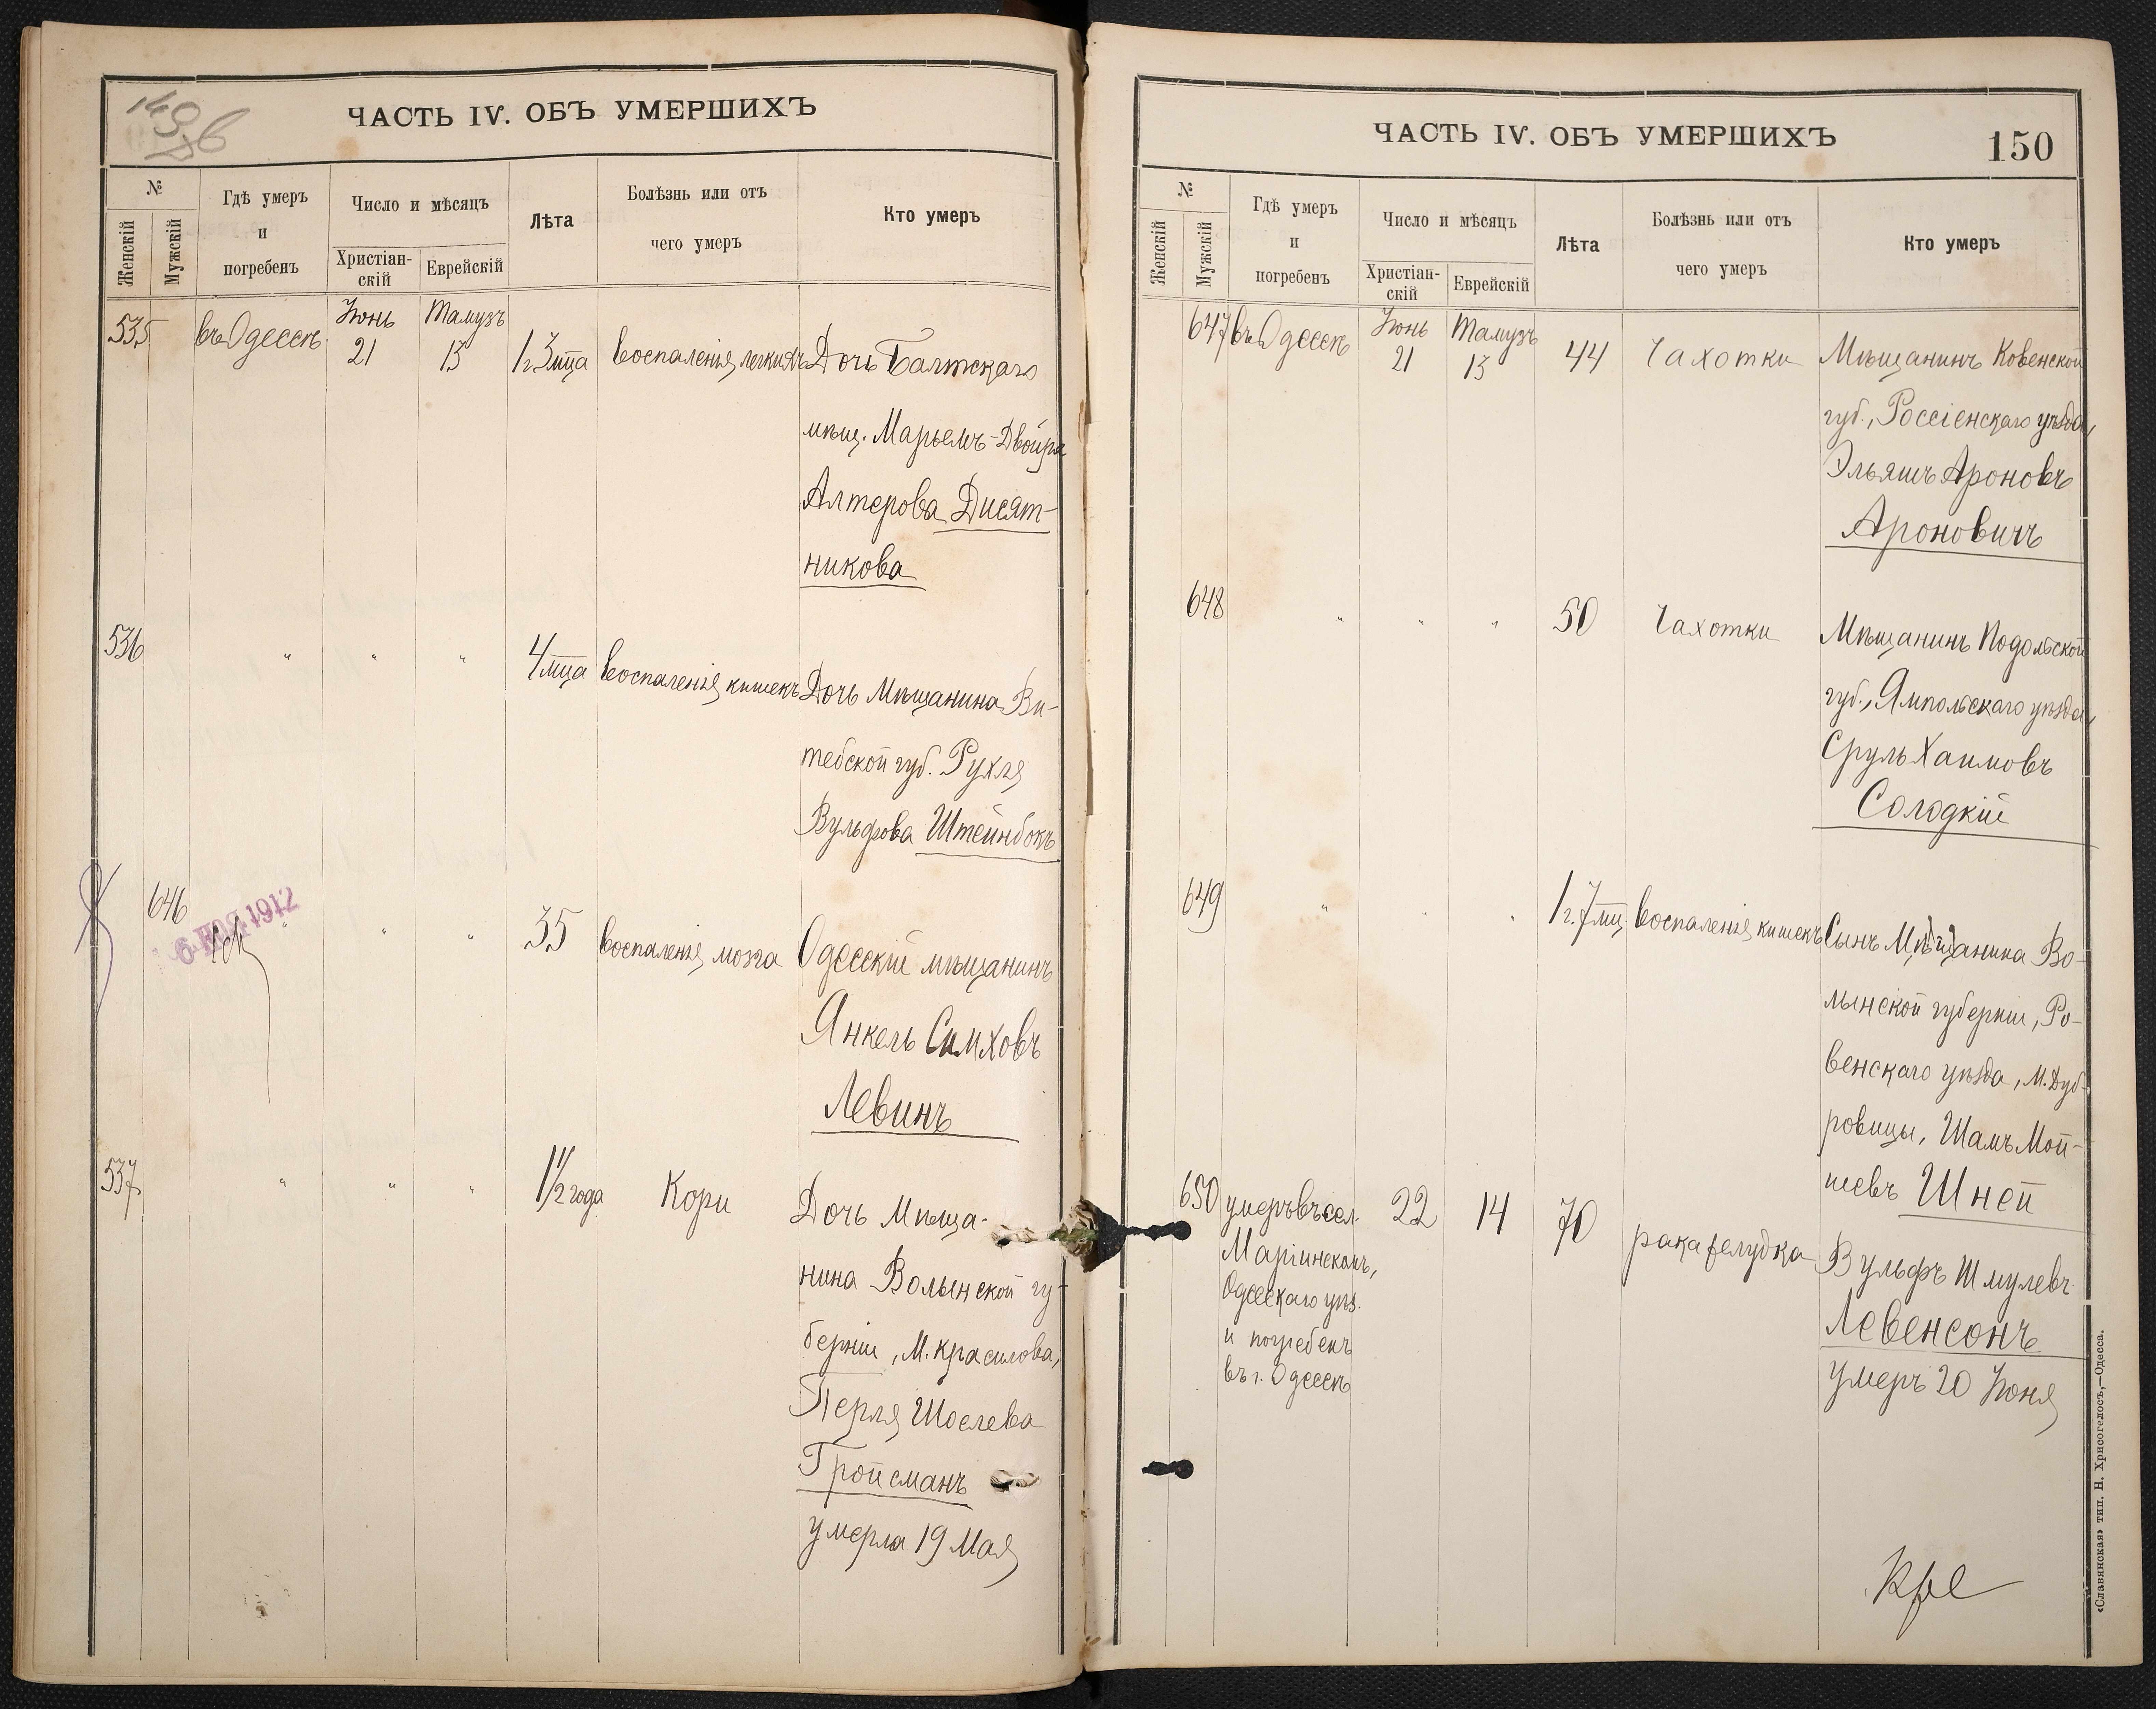 149 об
ЧАСТЬ IV. ОБЪ УМЕРШИХЪ
№
Женскій
Мужскій
Гдѣ умеръ
и
погребенъ
Число и мѣсяцъ
Христіан-
скій
Еврейскій
Лѣта
Болѣзнь или отъ
чего умеръ
Кто умеръ
535 въ Одессѣ Іюнь 21 Тамузъ 13 1г. 3 м̅ц̅а воспаленія легкихъ Дочь Балтскаго
мѣщ. Марьемъ-Двойра
Алтерова Дисят-
никова
536 " " " 4 м̅ц̅а воспаленія кишекъ Дочь Мѣщанина Ви-
тебской губ. Рухля
Вульфова Штейнбокъ
646 " " " 35 воспаленія мозга Одесскій мѣщанинъ
1912
Янкель Симховъ
Левинъ
537 " " " 1 1/2 года Кори Дочь Мѣща-
нина Волынской гу-
берніи, М. Красилова,
Перля Шоелева
Гройсманъ
умерла 19 Мая
ЧАСТЬ IV. ОБЪ УМЕРШИХЪ
150
№
Женскій
Мужскій
Гдѣ умеръ
и
погребенъ
Число и мѣсяцъ
Христіан-
скій
Еврейскій
Лѣта
Болѣзнь или отъ
чего умеръ
Кто умеръ
647 въ Одессѣ Іюнь 21 Тамузъ 13 44 Чахотки Мѣщанинъ Ковенской
губ., Россіенскаго уѣзда,
Эльяшъ Ароновъ
Ароновичъ
648 " " " 50 Чахотки Мѣщанинъ Подольской
губ., Ямпольскаго уѣзда,
Сруль Хаимовъ
Солодкій
649 " " " 1г. 7 мц. воспаленія кишекъ Сынъ Мѣщанина Во-
лынской губерніи, Ро-
венскаго уѣзда, М. Дуб-
ровицы, Шамъ Мой-
шевъ Шней
650 умеръ въ сел. 22 14 70 рака желудка Вульфъ Шмулевъ
Маріинскомъ,
Одесскаго уѣз.
и погребенъ
въ г. Одессѣ
Левенсонъ
умеръ 20 Іюня
«Славянская» тип. Н. Хрисогелосъ,—Одесса.